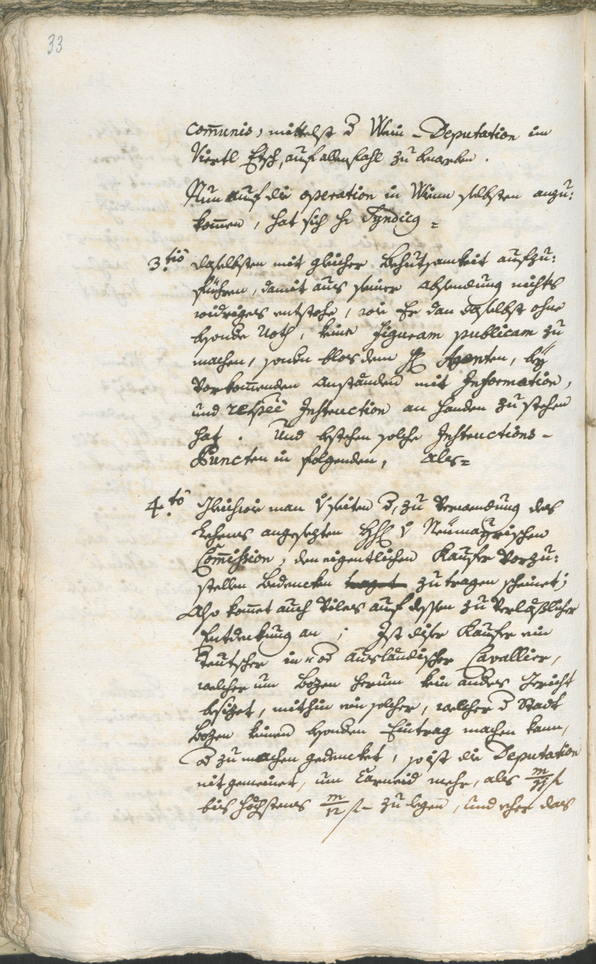 33
communis, mittelst d Wein-Deputation im
Viertl Etsch, auf allenfahl zu bearben.
Nun auf die operation in Wienn selbsten anzu:
kommen, hat sich H. Syndicg =
3.tio daselbsten mit gleicher behutsamkeit aufzu:
führen, damit aus seiner absendung nichts
widriges entstehe, wie Er dan daselbst ohne
bsonde Noth, keine Figuram publicam zu
machen, sonder blos dem H. Agenten, bey
Vorkommenden anständen mit Information,
und resṕeè Instruction an handen zu stehen
hat. Und bestehen solche Instructions-
Puncten in folgenden, als=
4.to Gleichwie man v seiten d, zu Verwendung des
Lehens angesezten HH v Neumayrischen
Commission, den eigentlichen Kaufer Vorzu:
stellen bedencken traget zu tragen scheinet;
Also kommet auch Viles auf dessen zu Verläßlicher
Entdeckung an; Ist diser Kaufer ein
Teutscher in- od ausländischer Cavallier,
welcher um Bozen herum kein anders Gericht
besizet, mithin ein solcher, welcher d Stadt
Bozen keinen bsonden Eintrag machen kann,
od zu machen gedencket, so ist die Deputation
nit gemeinet, um Carneid mehr, als m/11 f
bis höchstens m/12 f- zu legen, und ehes das